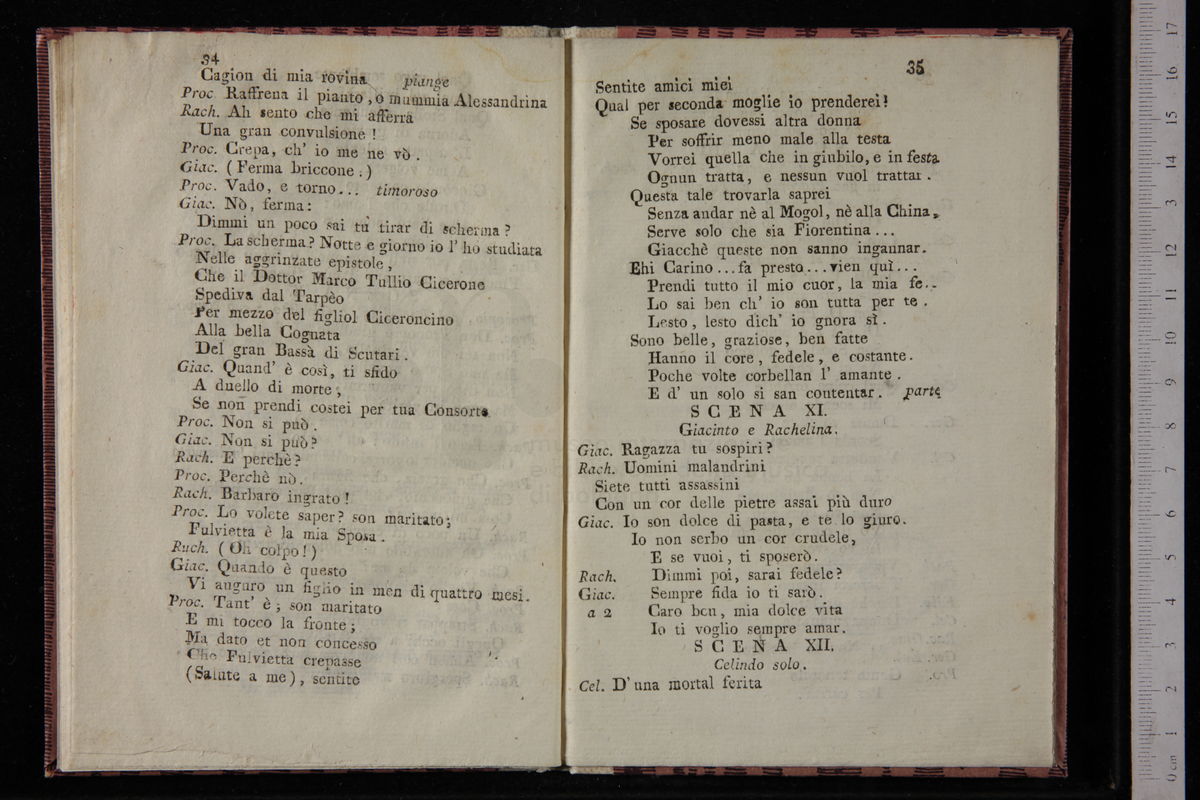 34
Cagion di mia rovina piange
Proc Raffrena il pianto, o mummia Alessandrina
Rach. Ah sento che mi afferra
Una gran convulsione !
Proc. Crepa, ch' io me ne vò .
Giac. ( Ferma briccone . )
Proc. Vado, e torno... timoroso
Giac. Nò, ferma:
Dimmi un poco sai tù tirar di scherma ?
Proc. La scherma? Notte e giorno io l' ho studiata
Nelle aggrinzate epistole ,
Che il Dottor Marco Tullio Cicerone
Spediva dal Tarpèo
Per mezzo del figliol Ciceroncino
Alla bella Cognata
Del gran Bassà di Scutari .
Giac. Quand' è così, ti sfido
A duello di morte ;
Se non prendi costei per tua Consorte
Proc. Non si può .
Giac. Non si può?
Rach. E perchè?
Proc. Perchè nò.
Rach. Barbaro ingrato !
Proc. Lo volete saper? son maritato;
Fulvietta è la mia Sposa .
Rach. ( Oh colpo! )
Giac. Quando è questo
Vi auguro un figlio in men di quattro mesi.
Proc. Tant' è ; son maritato
E mi tocco la fronte ;
Ma dato et non concesso
Che Fulvietta crepasse
(Salute a me) , sentite
35
Sentite amici miei
Qual per seconda moglie io prenderei!
Se sposare dovessi altra donna
Per soffrir meno male alla testa
Vorrei quella che in giubilo, e in festa
Ognun tratta, e nessun vuol trattar .
Questa tale trovarla saprei
Senza andar nè al Mogol, nè alla China,
Serve solo che sia Fiorentina ...
Giacchè queste non sanno ingannar.
Ehi Carino ... fa presto ... vien quì ...
Prendi tutto il mio cuor, la mia fe..
Lo sai ben ch' io son tutta per te .
Lesto , lesto dich' io gnora sì .
Sono belle, graziose, ben fatte
Hanno il core , fedele , e costante.
Poche volte corbellan l' amante .
E d' un solo si san contentar. parte
SCENA XI.
Giacinto e Rachelina.
Giac. Ragazza tu sospiri?
Rach. Uomini malandrini
Siete tutti assassini
Con un cor delle pietre assai più duro
Giac. Io son dolce di pasta, e te lo giuro.
Io non serbo un cor crudele,
E se vuoi, ti sposerò.
Rach. Dimmi poi, sarai fedele?
Giac. Sempre fida io ti sarò.
a 2 Caro ben, mia dolce vita
Io ti voglio sempre amar.
SCENA XII.
Celindo solo.
Cel. D' una mortal ferita
0 cm 1 2 3 4 5 6 7 8 9 10 11 12 13 14 15 16 17